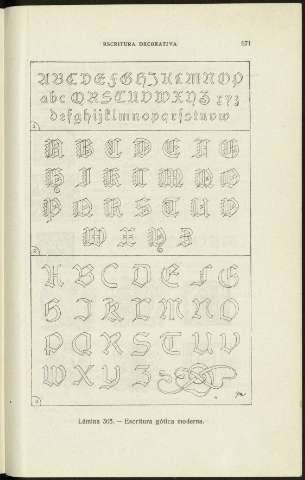 ESCRITURA DECORATIVA 571
ABCDEFGHIJKLMNOP
abc QRSTUVWXYZ xyz
defghijklmnopqrstuvw
1
ABCDEFG
HIJKLMNO
PQRSTUV
WXYZ
2
ABCDEFG
HIJKLMNO
PQRSTUV
WXYZ
3
Lámina 365. — Escritura gótica moderna.